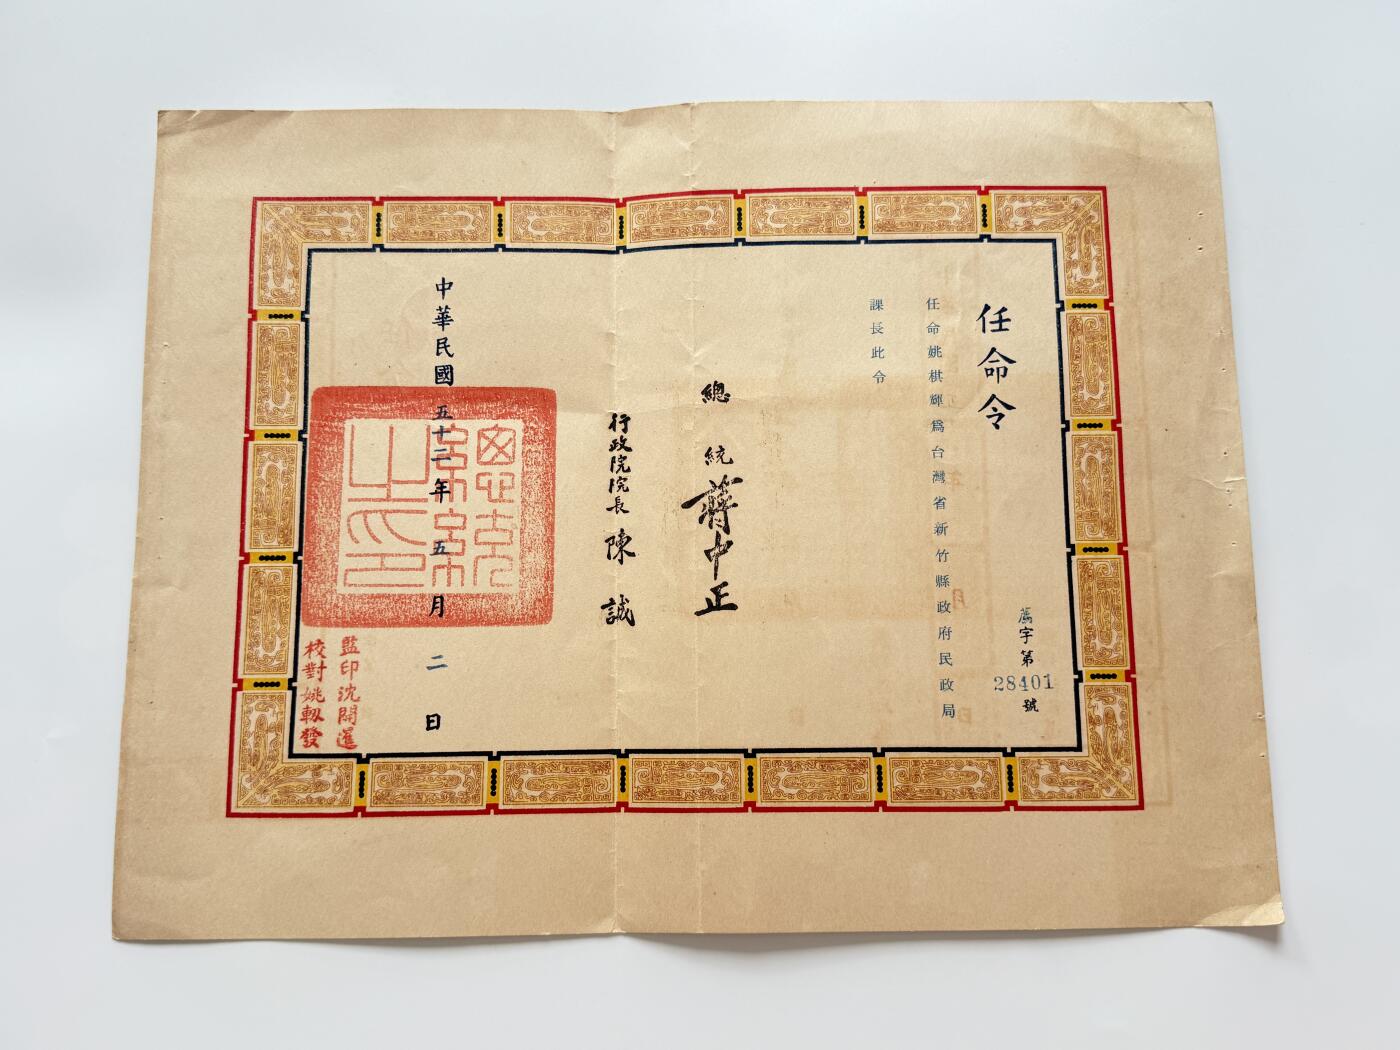 任命令
任命姚棋輝爲台灣省新竹縣政府民政局
課長此令
薦字第
28401
號
總統蔣中正
行政院院長陳誠
中華民國五十二年五月二日
總統之印
監印沈開暹
校對姚軔發